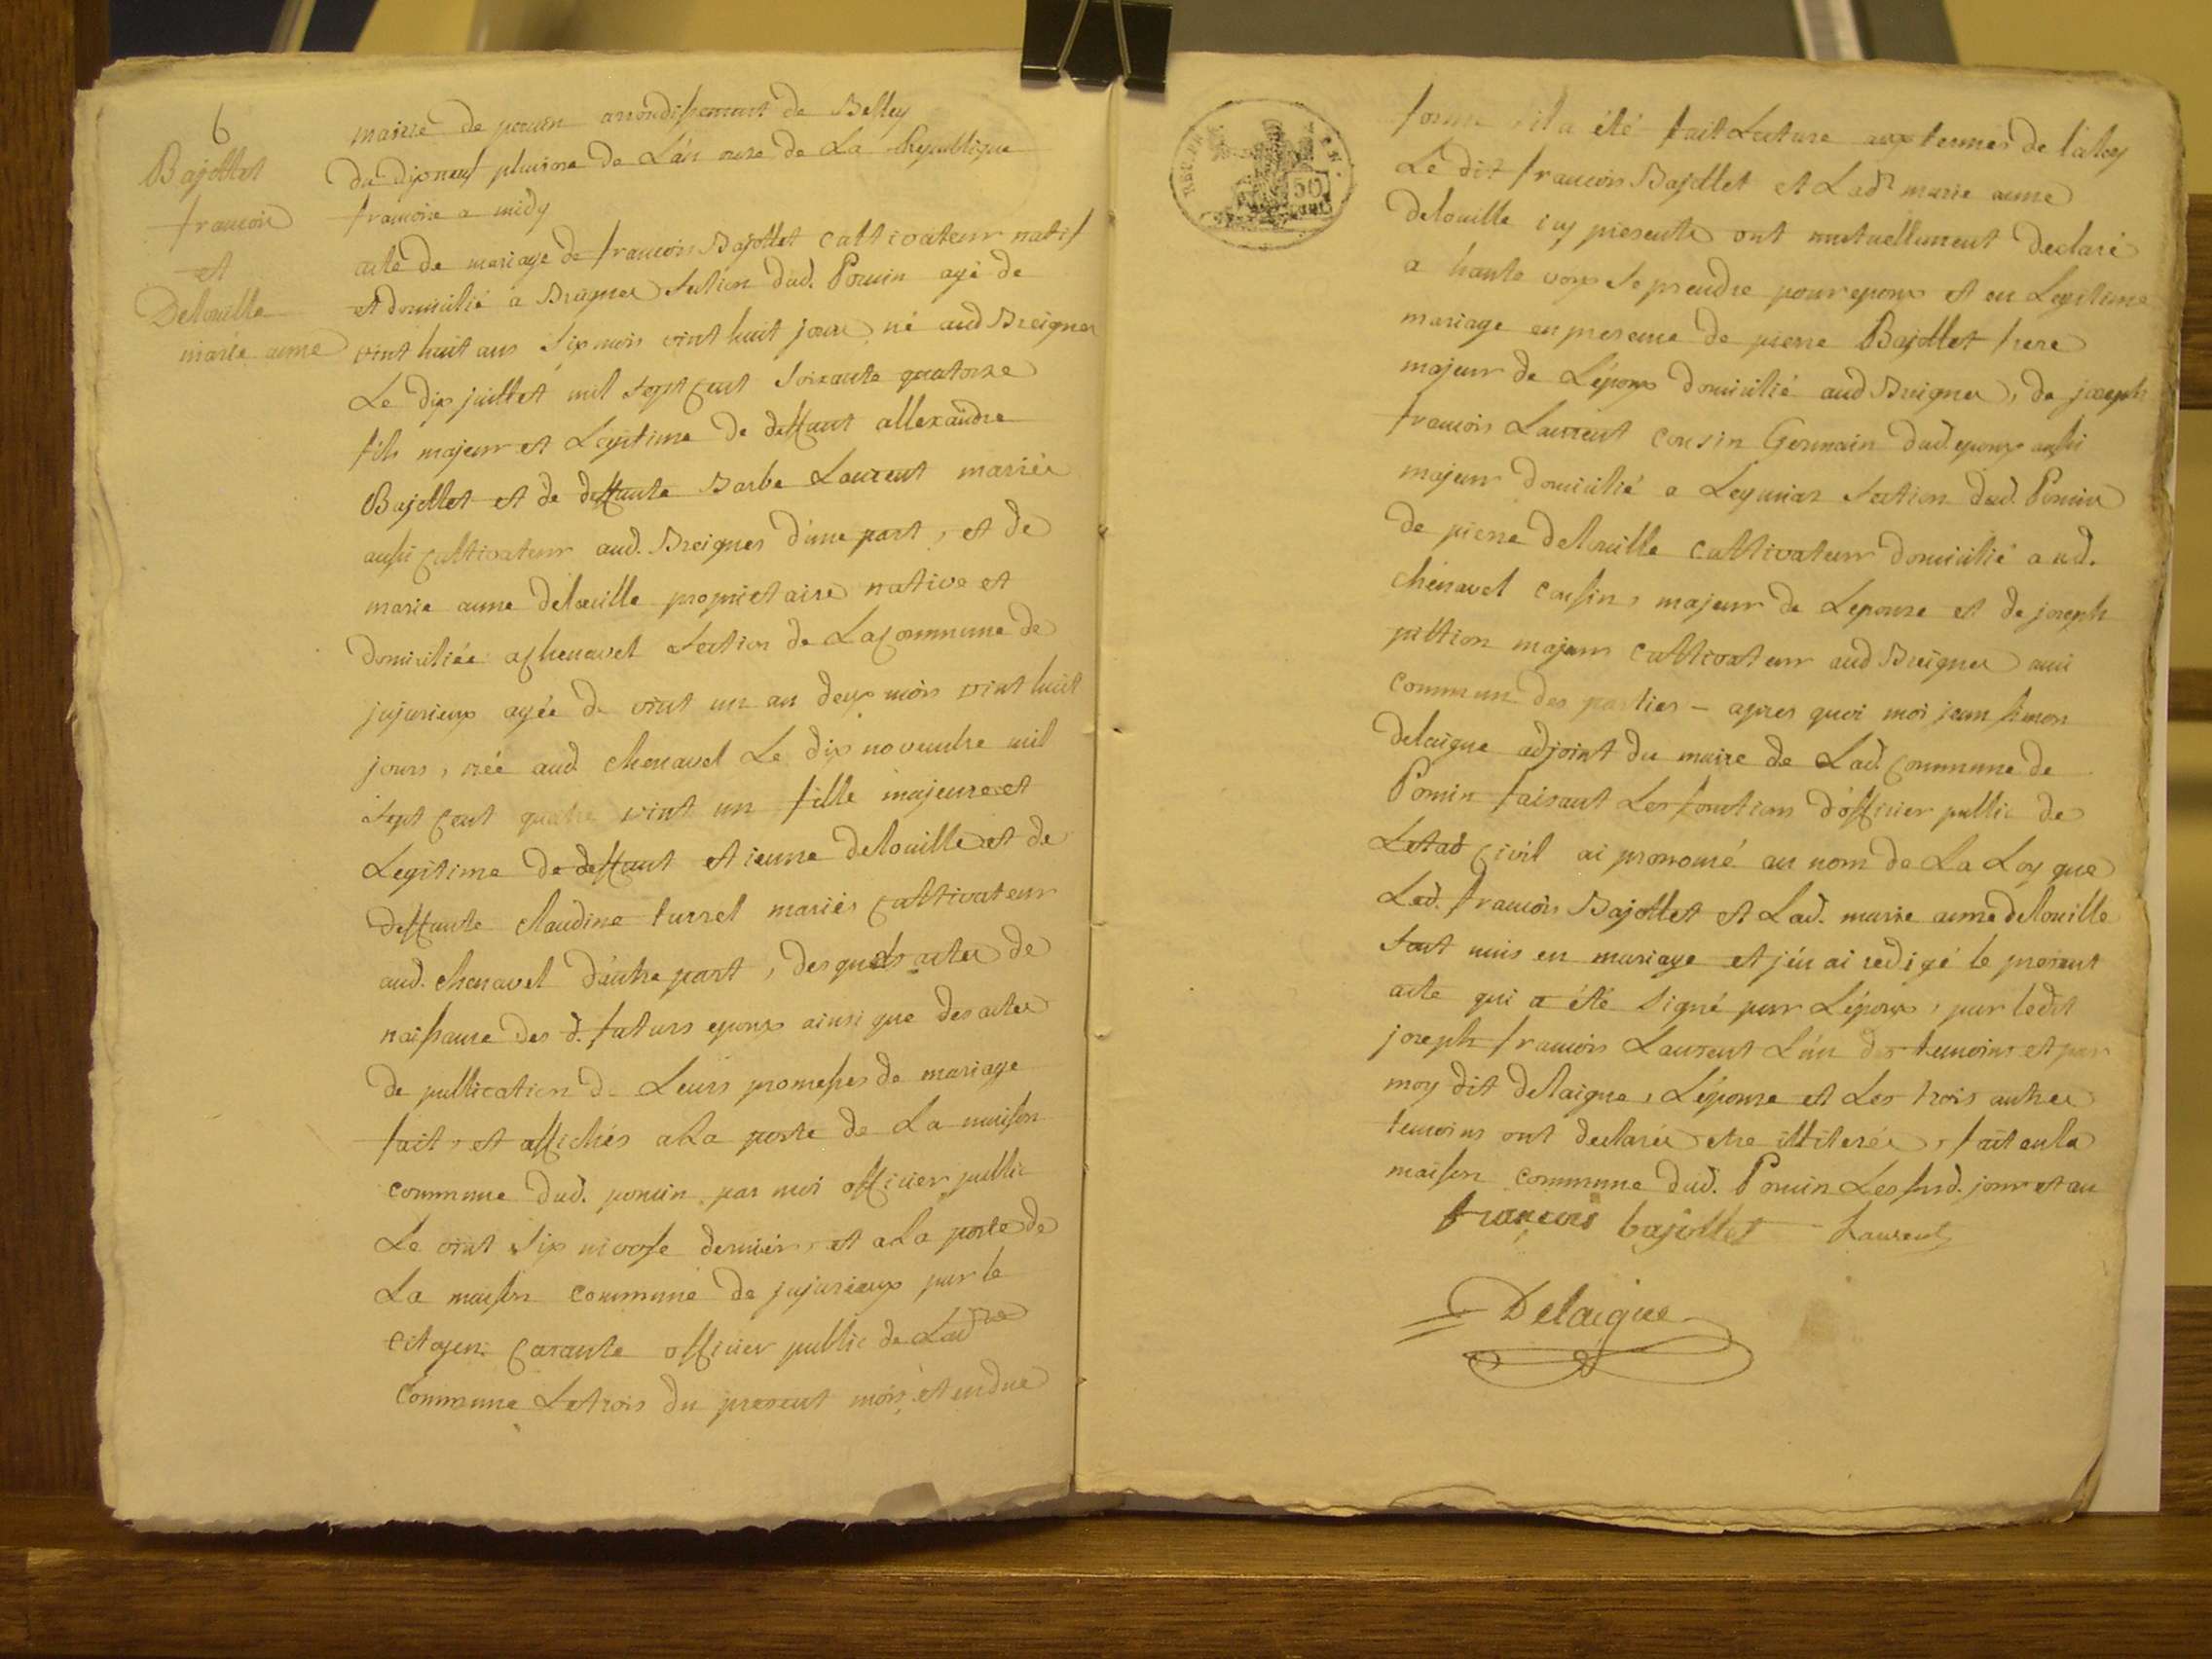 6
Bajollet
francois
et
Delouille
marie anne
mairie de poncin arrondissement de Belley
du dix neuf pluviose de L'an onze de La Republique
francoise a midy
acte de mariage de francois Bajollet cultivateur natif
et domicilié a Breignes section dud. Poncin agé de
vint huit ans six mois vint huit jours, né aud Breignes
Le dix juillet mil sept cent soixante quatorze
fils majeur et Legitime de deffunt allexandre
Bajollet et de deffunte Barbe Laurent mariés
aussi cultivateur aud. Breignes d'une part, et de
marie anne delouille proprietaire native et
domiciliée a chenavel section de La commune de
jujurieux agée de vint un an deux mois vint huit
jours, née aud chenavel Le dix novembre mil
sept cent quatre vint un fille majeure et
Legitime de deffunt etienne delouille et de
deffunte claudine turrel mariés cultivateur
aud. chenavel d'autre part, desquels actes de
naissance des d. futurs epoux ainsi que des actes
de publication de Leurs promesses de mariage
fait, et affichés a La porte de La maison
commune dud. poncin par moi officier public
Le vint six nivose dernier, et a La porte de
La maison commune de jujurieux par le
citoyen Carante officier public de Lad
commune Le trois du present mois, et en due
REP. FRA.
50
CENT
forme, il a été fait Lecture aux termes de la loy
Le dit francois Bajollet et Lad. marie anne
delouille icy presents ont mutuellement declaré
a haute voix se prendre pour epoux et en Legitime
mariage en presence de pierre Bajollet frere
majeur de L'époux domicilié aud Breignes, de joseph
francois Laurent cousin Germain dud. epoux aussi
majeur domicilié a Leymiaz section dud. Poncin
de pierre delouille cultivateur domicilié aud.
chenavel cousin, majeur de Lepouse et de joseph
pittion majeur cultivateur aud Breignes ami
commun des parties - apres quoi moi jean simon
delaigue adjoint du maire de Lad. commune de
Poncin faisant Les fonctions d'officier public de
Letat civil ai prononcé au nom de La Loy que
Led. francois Bajollet et Lad. marie anne delouille
sont unis en mariage et j'en ai redigé le present
acte qui a été signé par L'époux, par ledit
joseph francois Laurent L'un des temoins et par
moy dit delaigue, L'épouse et Les trois autres
temoins ont declarés etre illiterés, fait en la
maison commune dud. Poncin Les sud. jour et an
francois bajollet Laurent
Delaigue